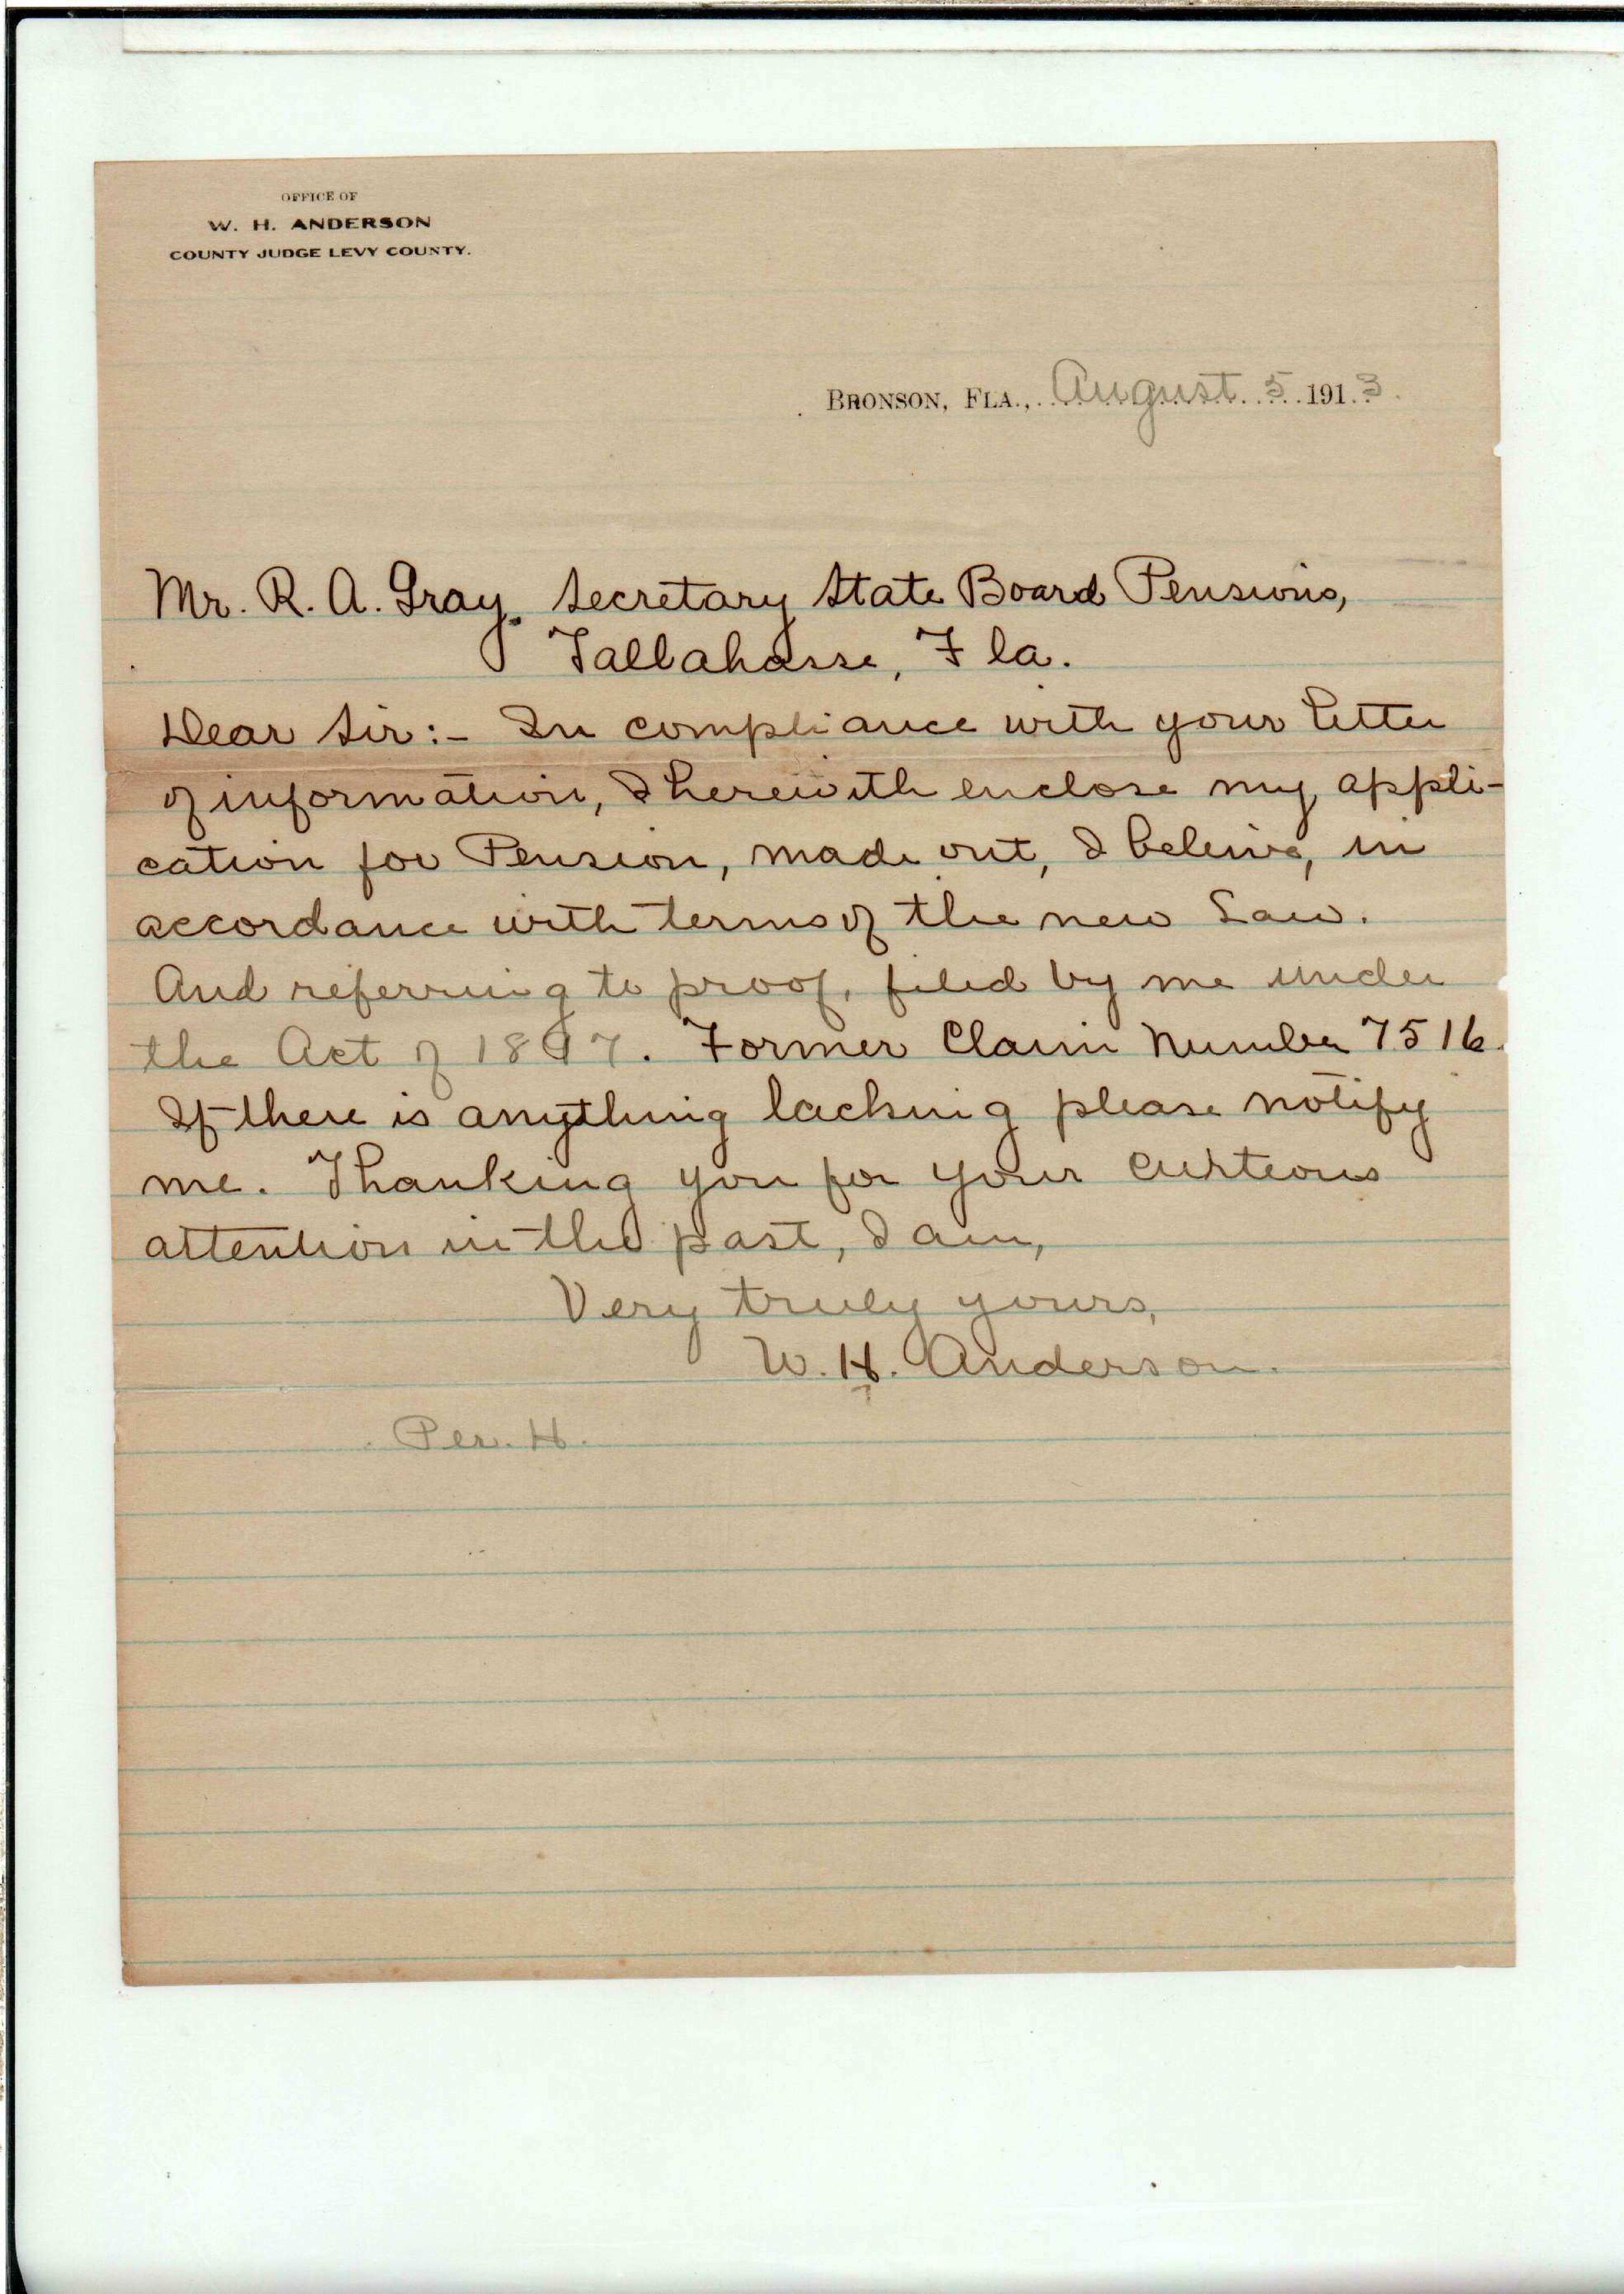 OFFICE OF
W. H. ANDERSON
COUNTY JUDGE LEVY COUNTY.
BRONSON, FLA., August 5 1913.
Mr. R. A. Gray. Secretary State Board Pensions,
Tallahasse, Fla.
Dear Sir:- In compliance with your letter
of information, I herewith enclose my appli-
cation for Pension, made out, I beleive, in
accordance with terms of the new Law.
And referring to proof, filed by me under
the Act of 1897. Former Claim Number 7516.
If there is anything lacking please notify
me. Thanking you for your curteous
attention in the past, I am,
Very truly yours,
W. H. Anderson.
Per. H.